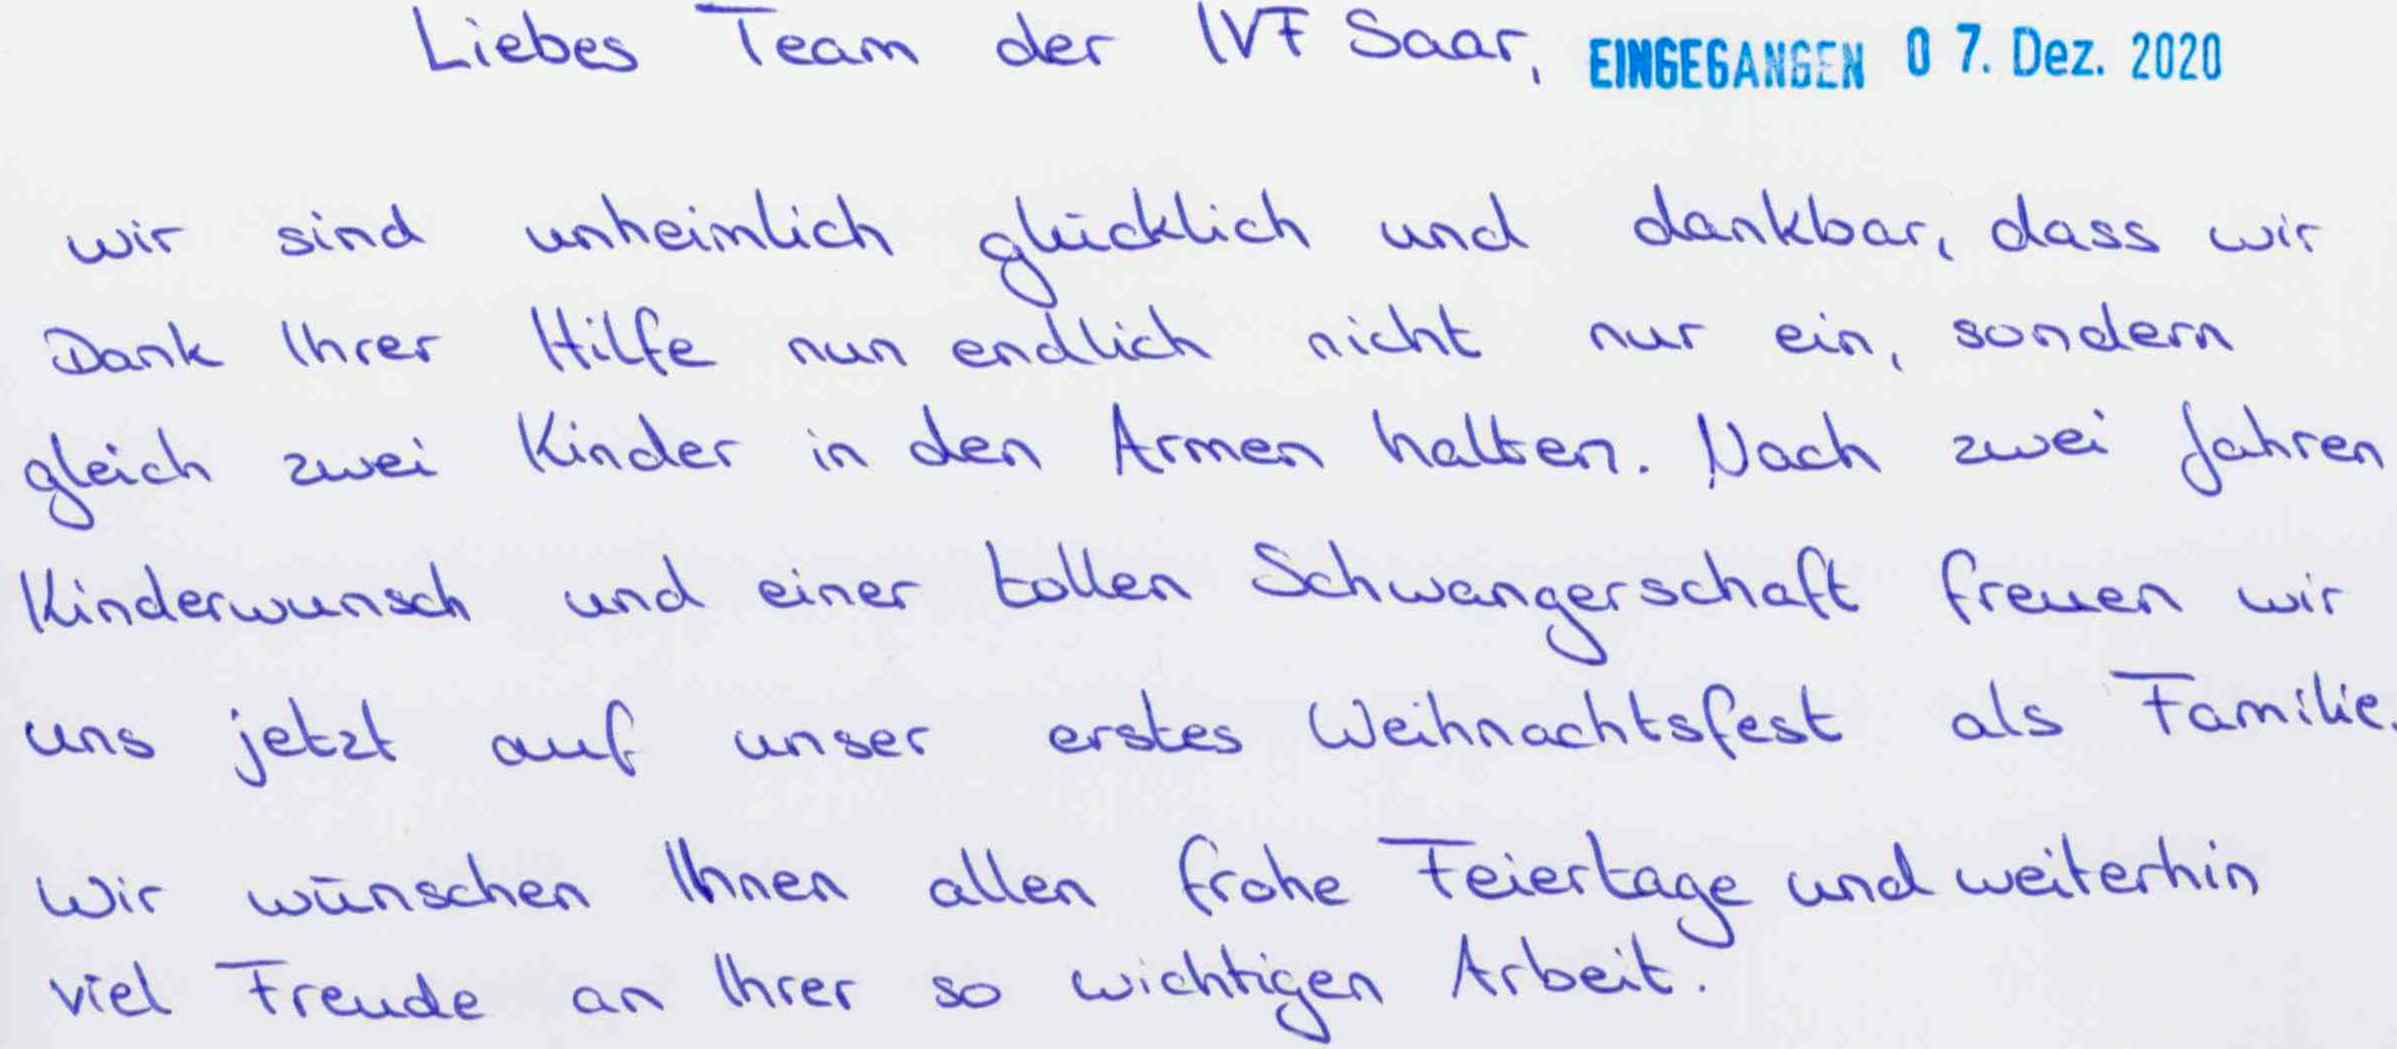 Liebes Team der IVF Saar, EINGEGANGEN 0 7. Dez. 2020
wir sind unheimlich glücklich und dankbar, dass wir
Dank Ihrer Hilfe nun endlich nicht nur ein, sondern
gleich zwei Kinder in den Armen halten. Nach zwei Jahren
Kinderwunsch und einer tollen Schwangerschaft freuen wir
uns jetzt auf unser erstes Weihnachtsfest als Familie.
Wir wünschen Ihnen allen frohe Feiertage und weiterhin
viel Freude an Ihrer so wichtigen Arbeit.